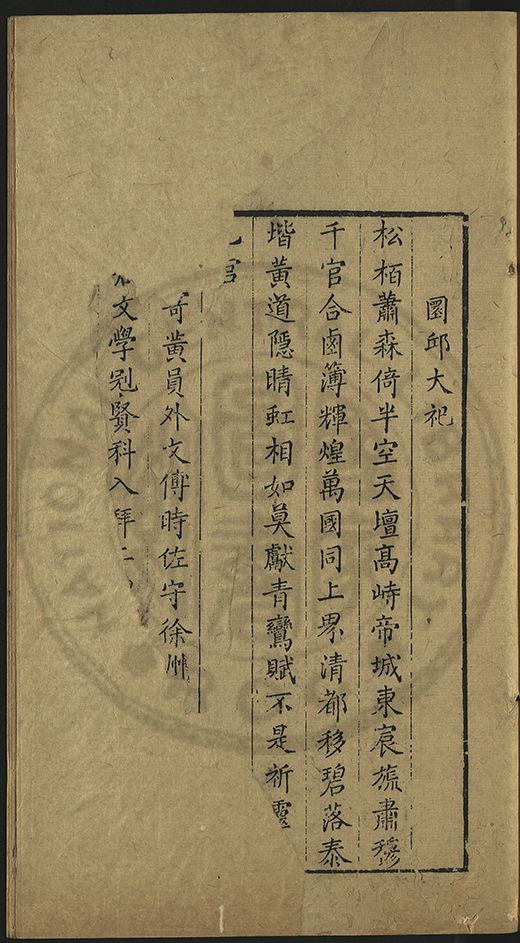 圜邱大祀
松栢蕭森倚半空天壇高峙帝城東宸旒肅穆
千官合鹵簿輝煌萬國同上界清都移碧落泰
堦黄道隱晴虹相如莫獻青鸞賦不是祈靈
官
寄黄員外文傅時佐守徐州
文學冠賢科入拜